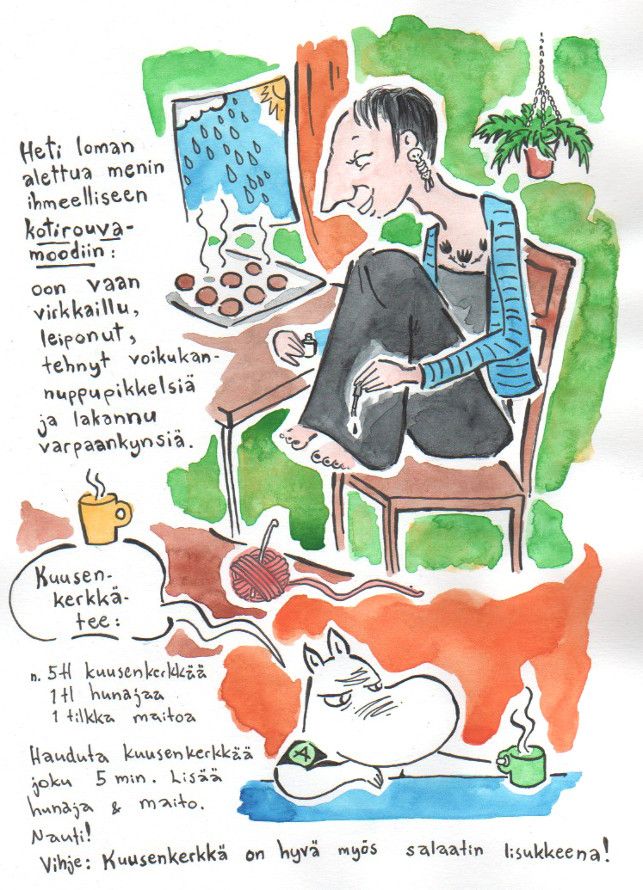 Heti loman
alettua menin
ihmeelliseen
kotirouva-
moodiin:
oon vaan
virkkaillu,
leiponut,
tehnyt voikukan-
nuppupikkelsiä
ja lakannu
varpaankynsiä.
Kuusen-
kerkkä-
tee:
n. 5tl kuusenkerkkää
1tl hunajaa
1 tilkka maitoa
Hauduta kuusenkerkkää
joku 5 min. Lisää
hunaja & maito.
Nauti!
Vihje: Kuusenkerkkä on hyvä myös salaatin lisukkeena!
A